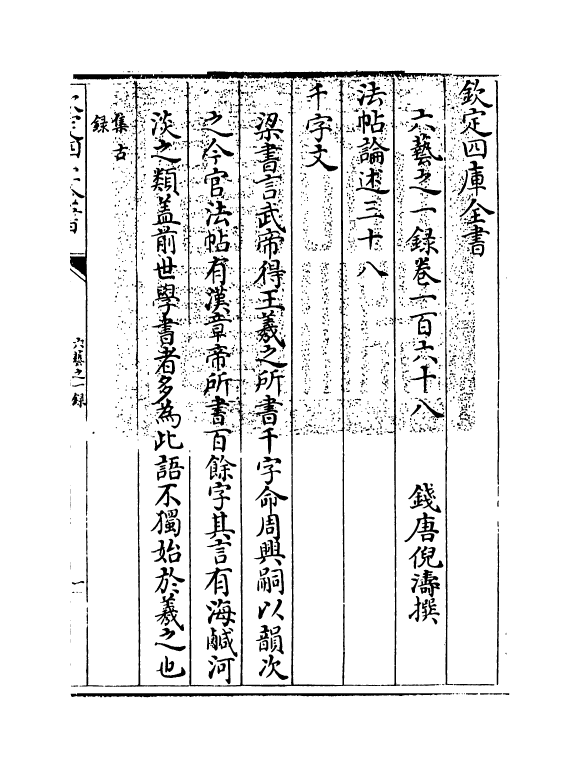 欽定四庫全書
六藝之一録卷二百六十八
錢唐倪濤撰
法帖論述三十八
千字文
梁書言武帝得王羲之所書千字命周興嗣以韻次
之今官法帖有漢章帝所書百餘字其言有海鹹河
淡之類蓋前世學書者多為此語不獨始於羲之也
集古
録
欽定四庫全書
六藝之一録
一